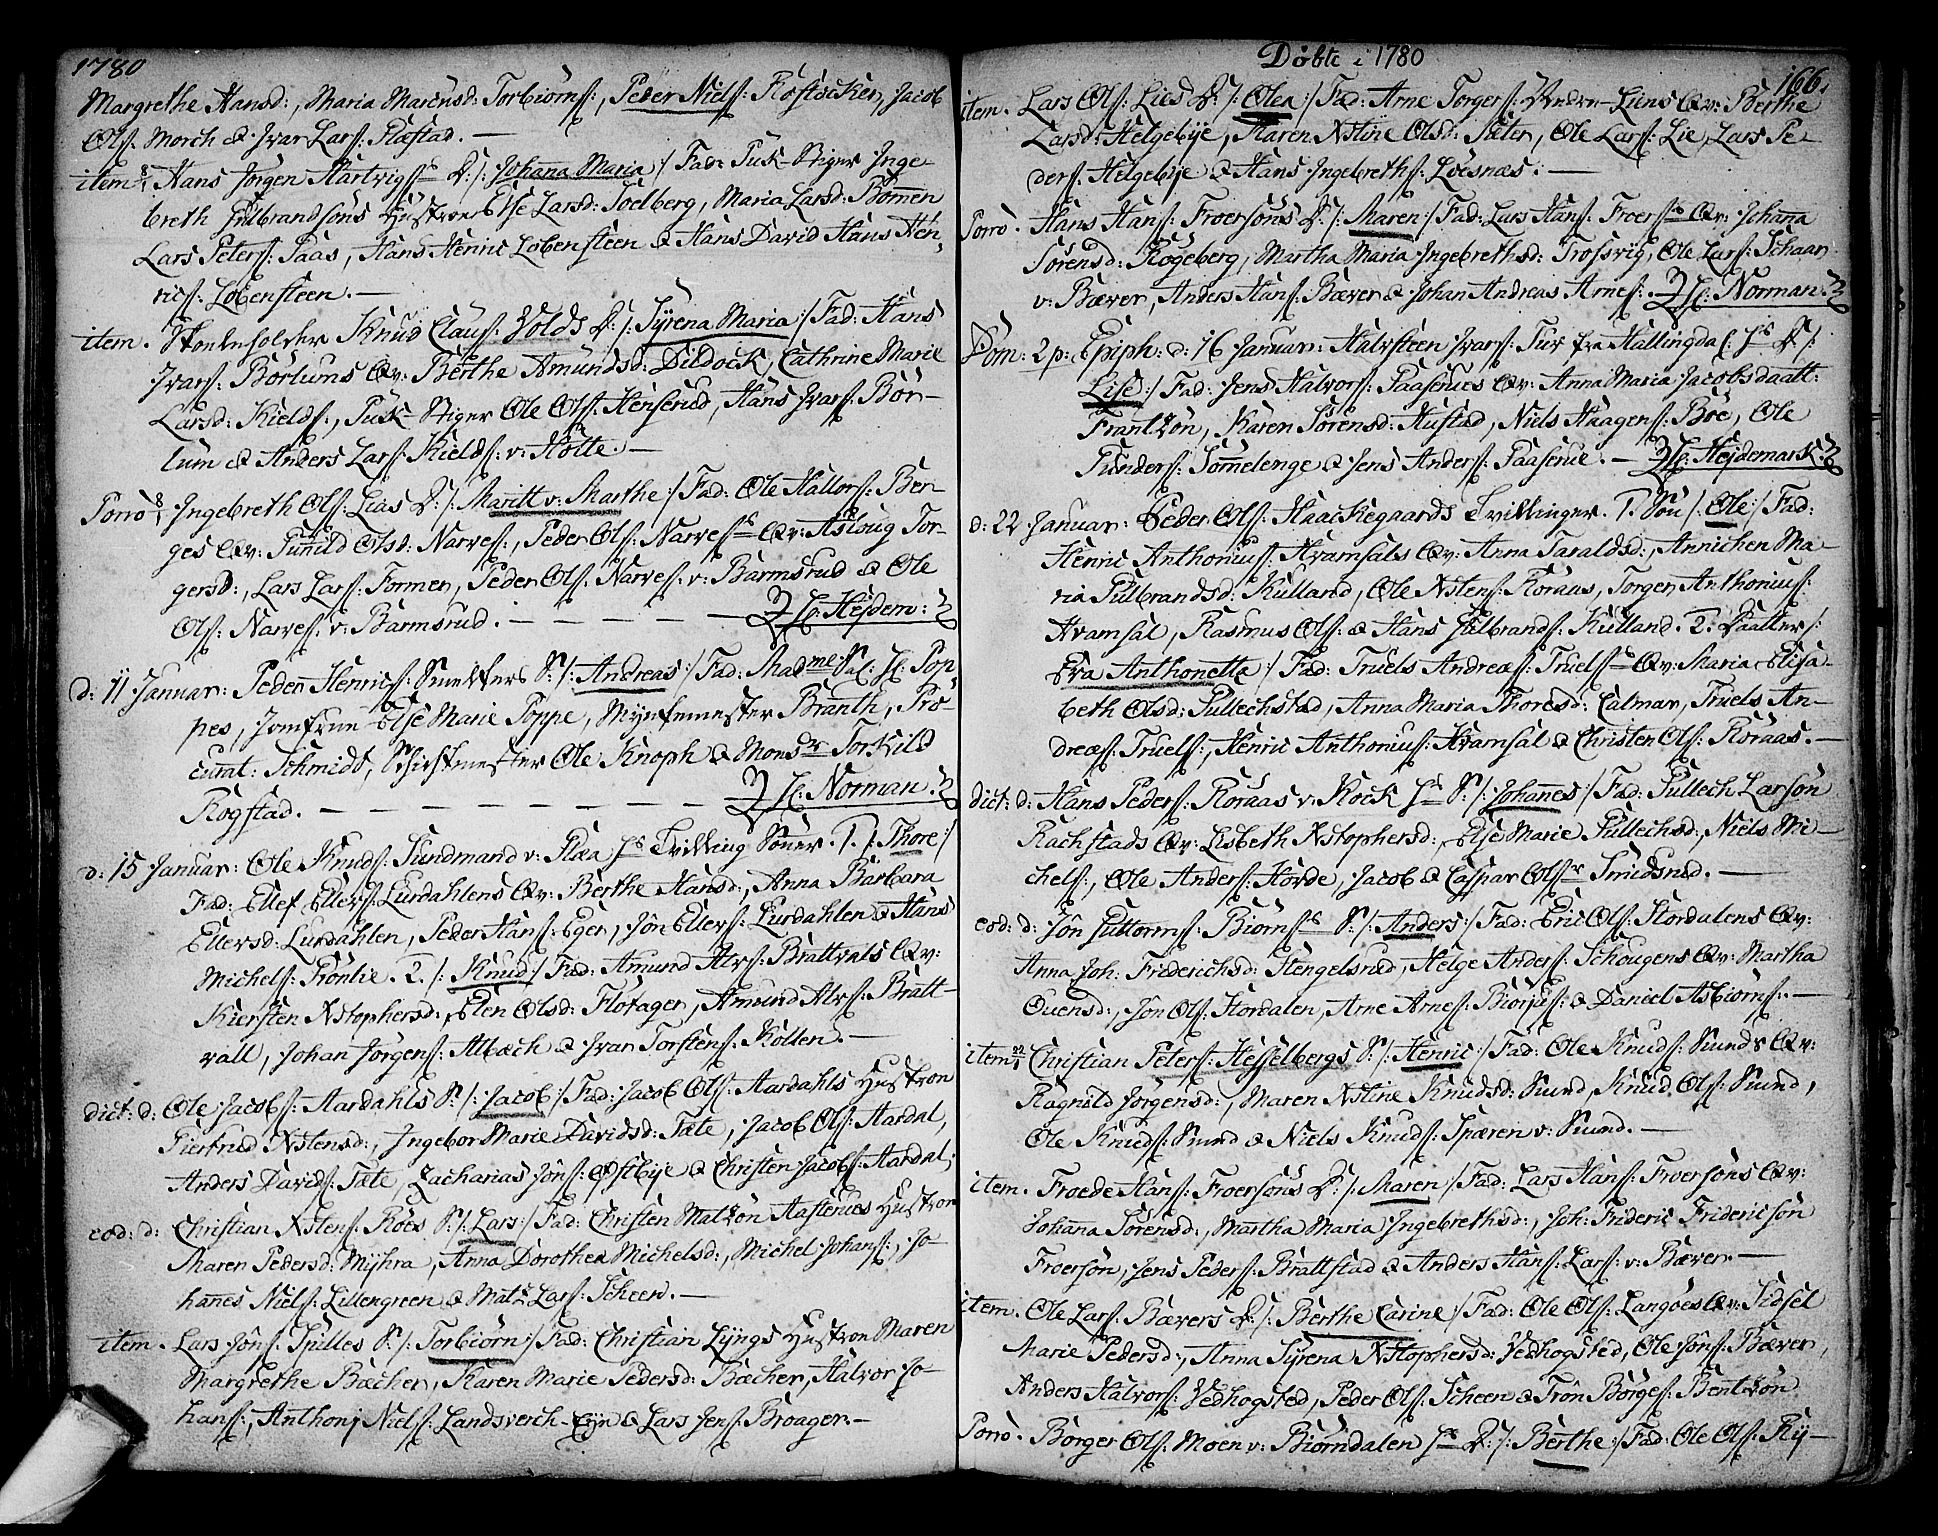 1780
Margrethe Hansd:, Maria Marcusd: Torbiørns:, Peder Niels: Flostocken, Jacob
Ols: Morch & Ivar Lars: Flæstad. —
item 8/1 Hans Jørgen Hartvigs D: /: Johana Maria :/ Fad: Stiger Inge-
breth Gulbrandsøns Hustroe Else Larsd: Solberg, Maria Larsd: Bømen
Lars Peters: Saas, Hans Henric Lobensteen & Hans David Hans Hen-
rics: Lobensteen. —
item. Knud Claus: Volds D: /: Syrena Maria :/ Fad: Hans
Ivars: Børlums Qv: Berthe Amundsd: Dildock, Cathrine Marie
Larsd: Kields:, Stiger Ole Ols: Henserud, Hans Ivars: Bør-
lum & Anders Lars: Kields: v: Holte. —
Porro 8/1 Ingebreth Ols: Lias D: /: Maritt v: Marthe :/ Fad: Ole Hallors: Ben-
ges Qv: Gunild Olsd: Narves:, Peder Ols: Narves: Qv: Asloug Tor-
gersd:, Lars Lars: Formen, Peder Ols: Narves: v: Barmsrud & Ole
Ols: Narves: v: Barmsrud. — — — — — H: Hejdem:
d: 11 Januar: Peder Henrics: Smelters S: /: Andreas :/ Fad: Madme Sal: H: Pop-
pes, Jomfrue Else Marie Poppe, Myntemester Branth, Pro-
curat: Schmidt, Schichtmester Ole Knoph & Monsr Torkild
Rogstad. — — — — — — H: Norman.
d: 15 Januar: Ole Knuds: Sundmand v: Plæn Hs Tvilling Sønner. 1. /: Thore :/
Fad: Ellef Ellefs: Lurdahlens Qv: Berthe Hansd:, Anna Barbara
Ellersd: Lurdahlen, Peder Hans: Eger, Jøn Ellers: Lurdahlen & Hans
Michels: Grønlie. 2. /: Knud :/ Fad: Amund Alvs: Brattvals Qv:
Kiersten Xstophersd:, Elen Olsd: Flotager, Amund Alvs: Bratt-
vall, Johan Jørgens: Albæch & Ivar Torstens: Kollen. —
dict: d: Ole Jacobs: Aardahls S: /: Jacob :/ Fad: Jacob Ols: Aardahls Hustroe
Giertrud Xstensd:, Ingebor Marie Davidsd: Tæte, Jacob Ols: Aardal,
Anders Davids: Tæte, Zacharias Jøns: Østbye & Christen Jacobs: Aardal.
eod: d: Christian Xstens: Roes S: /: Lars :/ Fad: Christen Matzøn Aasterues Hustroe
Maren Pedersd: Myhra, Anna Dorothea Michelsd:, Michel Johans:, Jo-
hannes Niels: Lillengreen & Mats Lars: Scheen. —
item. Lars Jøns: Spilles S: /: Torbiørn :/ Fad: Christian Lyngs Hustroe Maren
Margrethe Bæcher, Karen Marie Pedersd: Bæcher, Halvor Jo-
hans:, Anthonj Niels: Landsverch-Eyn & Lars Jens: Broager. —
Døbte i 1780
166.
item. Lars Ols: Lies D: /: Olea :/ Fad: Arne Torgers: Liens Qv: Berthe
Larsd: Helgebye, Karen Xstine Olsd: Sæter, Ole Lars: Lie, Lars Pe-
ders: Helgebye & Hans Ingebreths: Løesnæs. —
Porro. Hans Hans: Froersøns D: /: Maren :/ Fad: Lars Hans: Froers Qv: Johana
Sørensd: Kogeberg, Martha Maria Ingebrethsd: Trosvig, Ole Lars: Schaar
v: Bæver, Anders Hans: Bæver & Johan Andreas Arnes: H: Norman.
Dom: 2 p: Epiph: d: 16 Januar: Halvsteen Ivars: Tuv fra Hallingdal Hs D: /:
Lise :/ Fad: Jens Halvors: Saaserues Qv: Anna Maria Jacobsdaatt:
Frantzøn, Karen Sørensd: Hustad, Niels Haagens: Bøe, Ole
Gunders: Sømelenge & Jens Anders: Saaserue. — H: Hejdemark.
d: 22 Januar: Peder Ols: Haackegaards Tvillinger. 1. Søn /: Ole :/ Fad:
Henric Anthonius: Hvamsals Qv: Anna Taraldsd:, Annichen Ma-
ria Gulbrandsd: Kulland, Ole Xstens: Koraas, Torger Anthonius:
Hvamsal, Rasmus Ols: & Hans Gulbrands: Kulland. 2. Daatter /:
Eva Anthonetta :/ Fad: Truels Andreæs: Truels Qv: Maria Elisa-
beth Olsd: Gullechstad, Anna Maria Thoresd: Calmar, Truels An-
dreæs: Truels:, Henric Anthonius: Hvamsal & Christen Ols: Koraas. —
dict: d: Hans Peders: Koraas v: Kock Hs S: /: Johannes :/ Fad: Gullech Larsøn
Rachstads Qv: Lisbeth Xstophersd:, Else Marie Gullechsd:, Niels Mi-
chels:, Ole Anders: Horde, Jacob & Caspar Ols: Smidsrud. —
eod: d: Jøn Guttorms: Biørns S: /: Anders :/ Fad: Eric Ols: Stordalens Qv:
Anna Joh: Friderichsd: Hengelsrud, Helge Anders: Schougens Qv: Martha
Evensd:, Jøn Ols: Stordalen, Arne Arnes: & Daniel Asbiørns: —
item 22/1 Christian Peters: Hesselbergs S: /: Henric :/ Fad: Ole Knuds: Sunds Qv:
Ragnild Jørgensd:, Maren Xstine Knudsd: Sund, Knud Ols: Sund,
Ole Knuds: Sund & Niels Knuds: Spæren v: Sund. —
item. Froede Hans: Froersøns D: /: Maren :/ Fad: Lars Hans: Froersøns Qv:
Johana Sørensd:, Martha Maria Ingebrethsd:, Joh: Frideric Fridericsøn
Froersøn, Jens Peders: Brattstad & Anders Hans: Lars: v: Bæver. —
item. Ole Lars: Bævers D: /: Berthe Carine :/ Fad: Ole Ols: Langøes Qv: Sidsel
Marie Pedersd:, Anna Syrena Xstophersd: Vedhogsted, Ole Jøns: Bæver,
Anders Halvors: Vedhogsted, Peder Ols: Scheen & Trøn Børges: Bentzøn
Porro. Børger Ols: Moen v: Biørndalen Hs D: /: Berthe :/ Fad: Ole Ols: Ry-